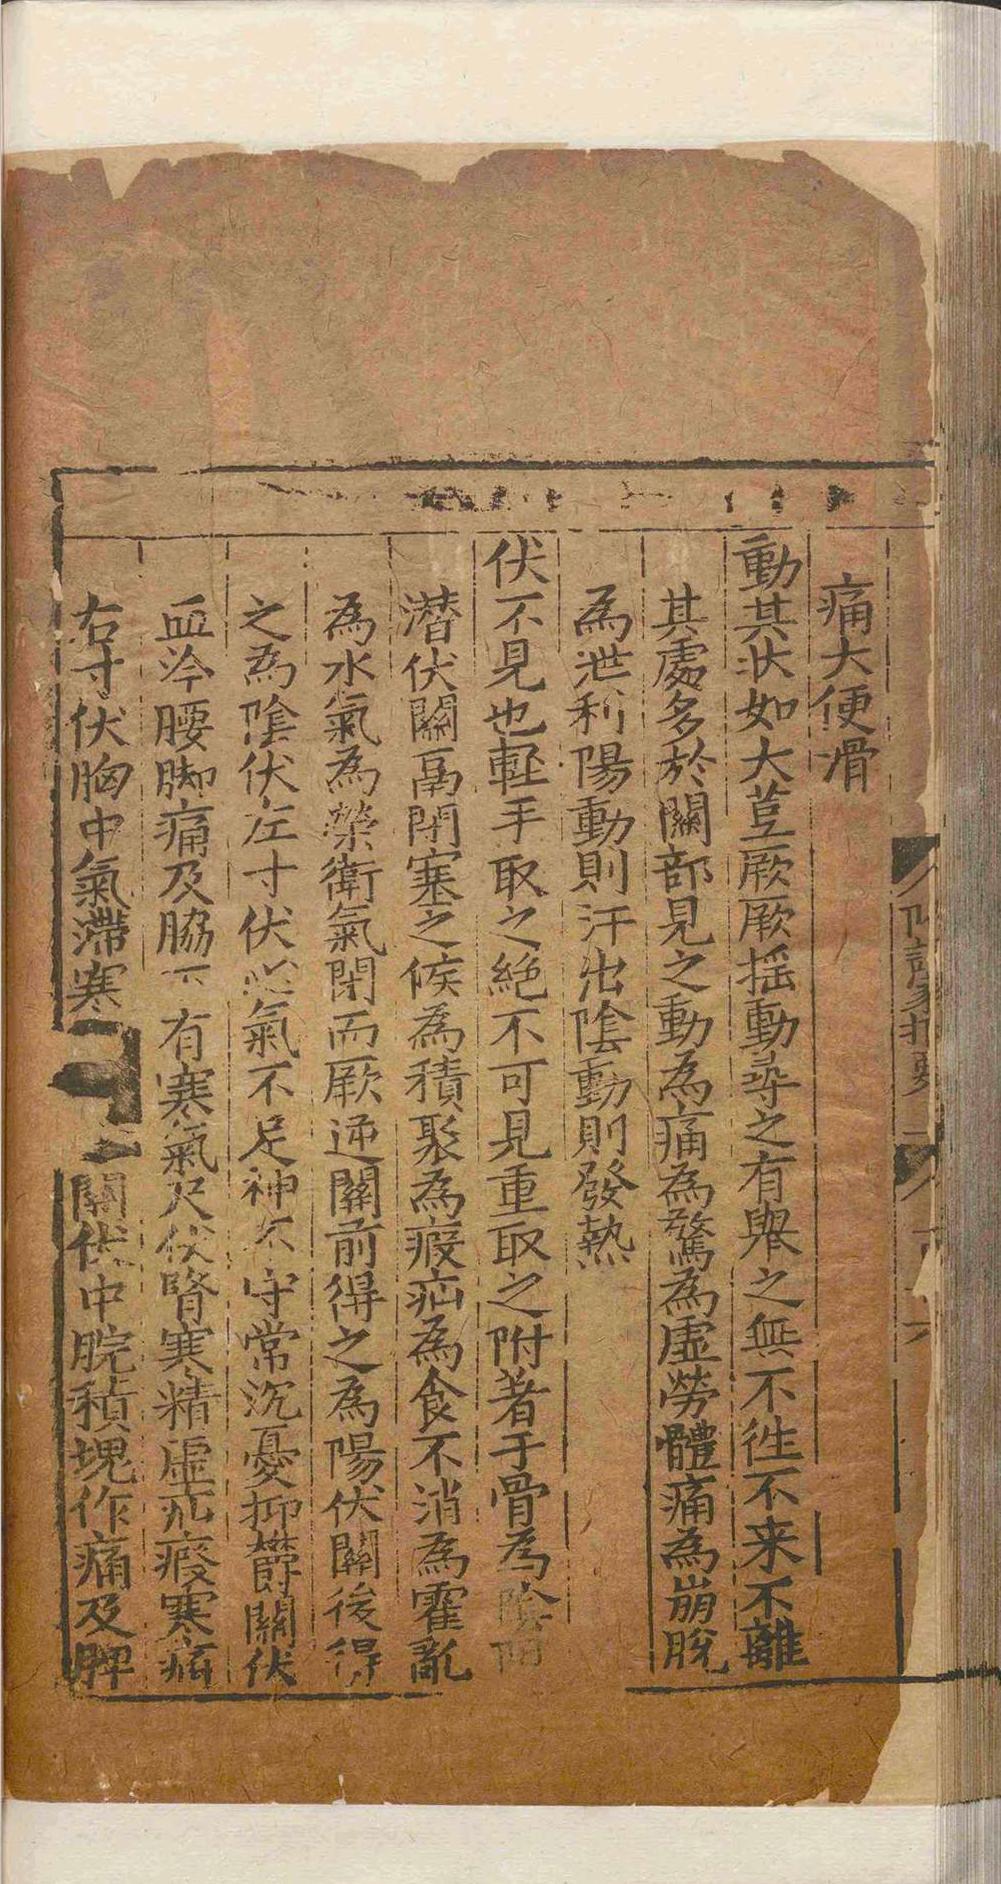 痛大便滑
動其状如大荳厥厥揺動尋之有舉之無不徃不来不離
其處多於關部見之動為痛為驚為虛勞體痛為崩脫
為泄利陽動則汗出陰動則發熱
伏不見也輕手取之絶不可見重取之附著于骨為陰陽
潜伏關鬲閉塞之候為積聚為瘕疝為食不消為霍亂
為水氣為榮衛氣閉而厥逆關前得之為陽伏關後得
之為陰伏左寸伏心氣不足神不守常沉憂抑欝關伏
血冷腰脚痛及脇下有寒氣尺伏腎寒精虛疝瘕寒痛
右寸伏胸中氣滯寒 關伏中脘積塊作痛及脾